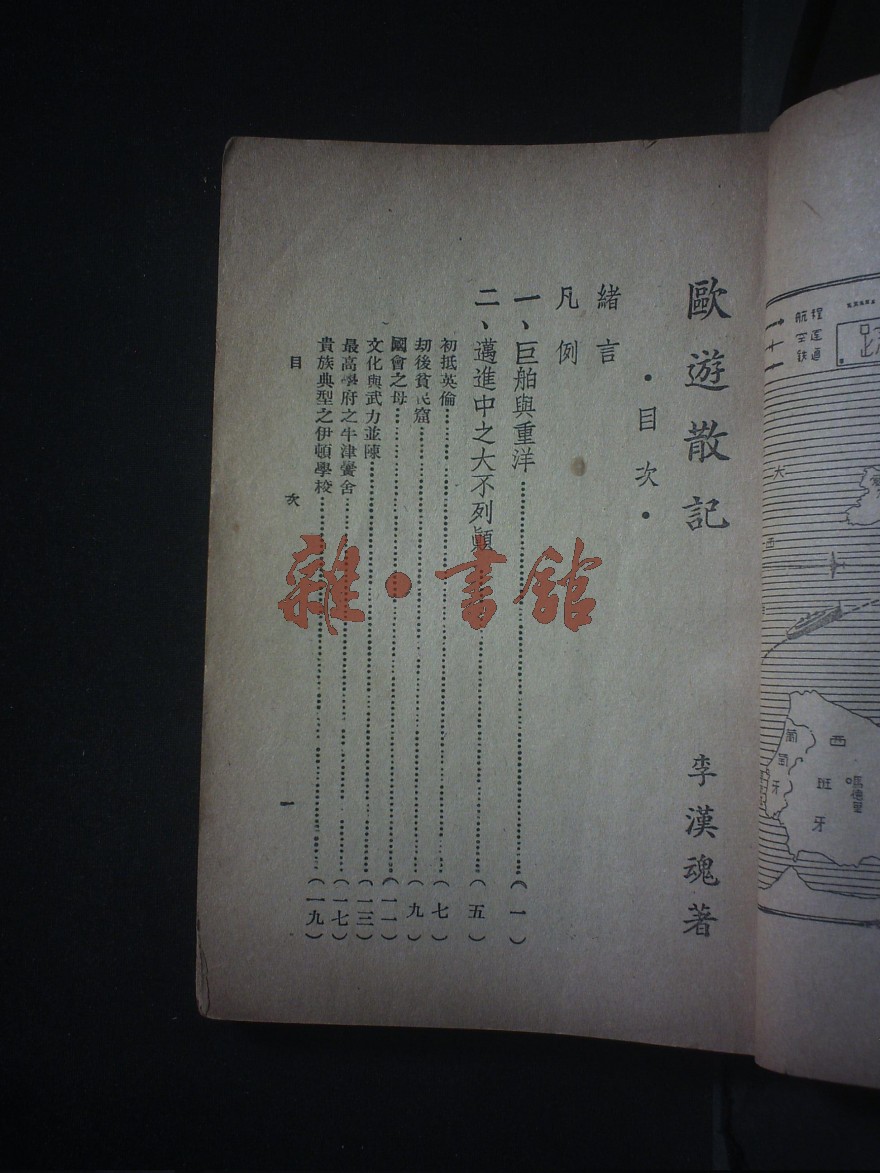 歐遊散記
李漢魂著
・目次・
緒言
凡例
一、巨舶與重洋……(一)
二、邁進中之大不列顛……(五)
初抵英倫……(七)
劫後貧民窟……(九)
國會之母……(一一)
文化與武力並陳……(一三)
最高學府之牛津黌舍……(一七)
貴族典型之伊頓學校……(一九)
目次
一
雜・書館
航程
空運
鐵道
大
西
葡萄牙
西班牙
馬德里